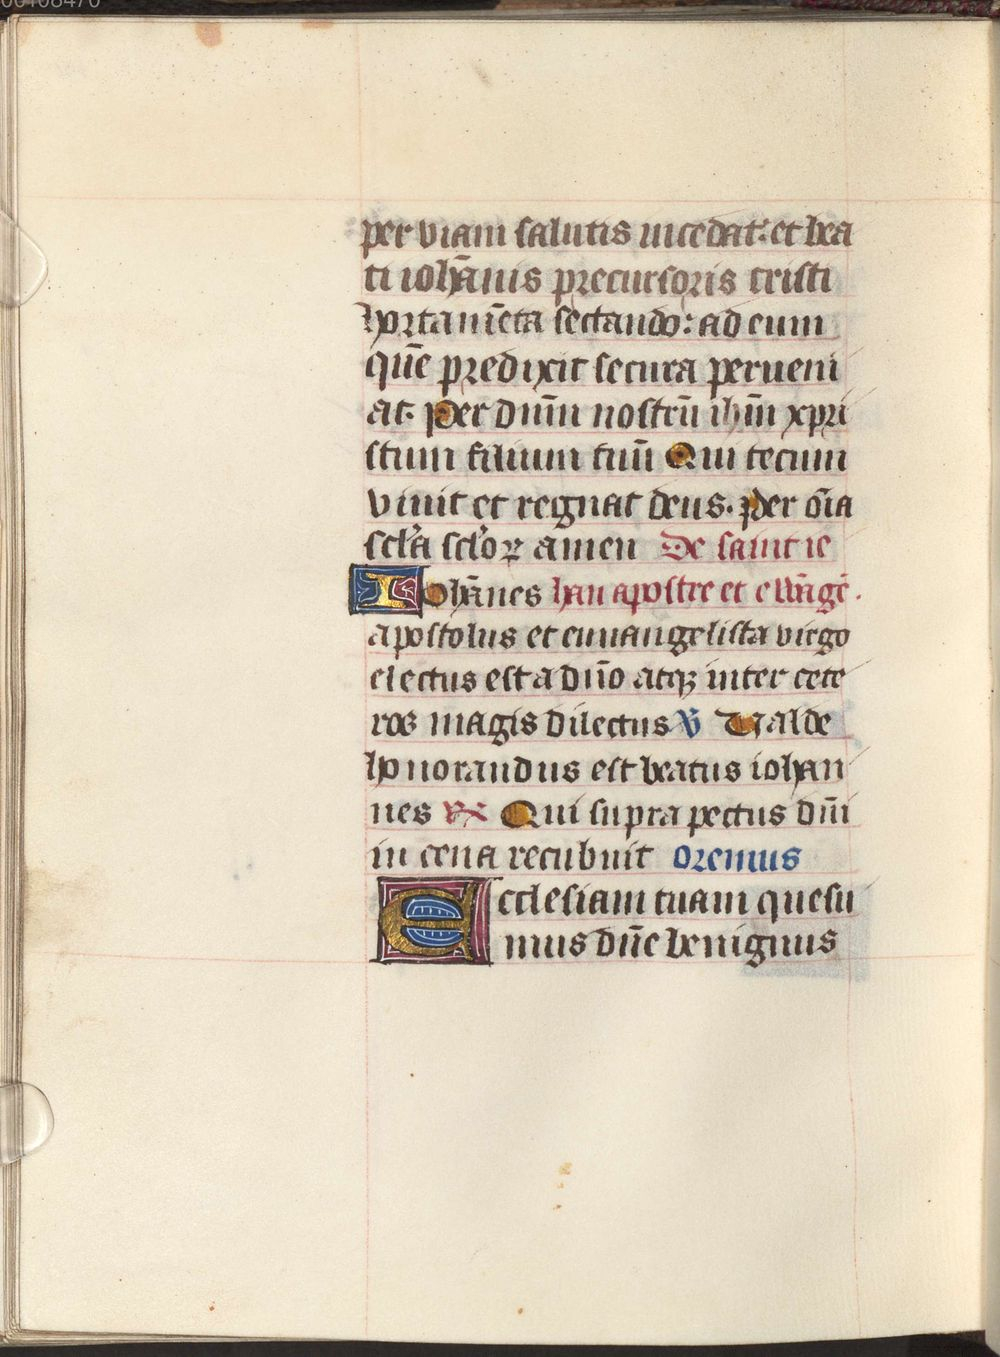 00108470
per viam salutis incedat: et bea
ti ioh̄annis precursoris cristi
hortamēta sectando: ad eum
quē predixit secura perueni
at. Per dn̄m nostrū ih̄m xpri
stum filium tuū Qui tecum
viuit et regnat deus. Per oīa
scl̄a scl̄oꝝ amen De saint ie
Ioh̄anes han apostre et ewāgē.
apostolus et euuangelista virgo
electus est a dn̄o atqꝫ inter cete
ros magis dilectus ℣ Valde
honorandus est beatus iohan
nes ℟ Qui supra pectus dn̄i
in cena recubuit Oremus
Ecclesiam tuam quesu
mus dn̄e benignus